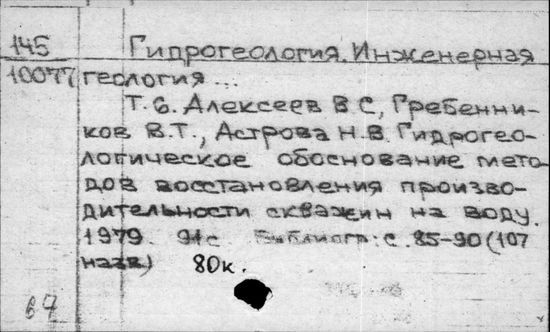 145 Гидрогеология. Инженерная
10077 геология...
Т. 6. Алексеев В.С., Гребенни-
ков В.Т., Астрова Н.В. Гидрогео-
логическое обоснование мето-
дов восстановления произво-
дительности скважин на воду.
1979. 91с Библиогр.: с. 85-90 (107
назв.) 80к.
67